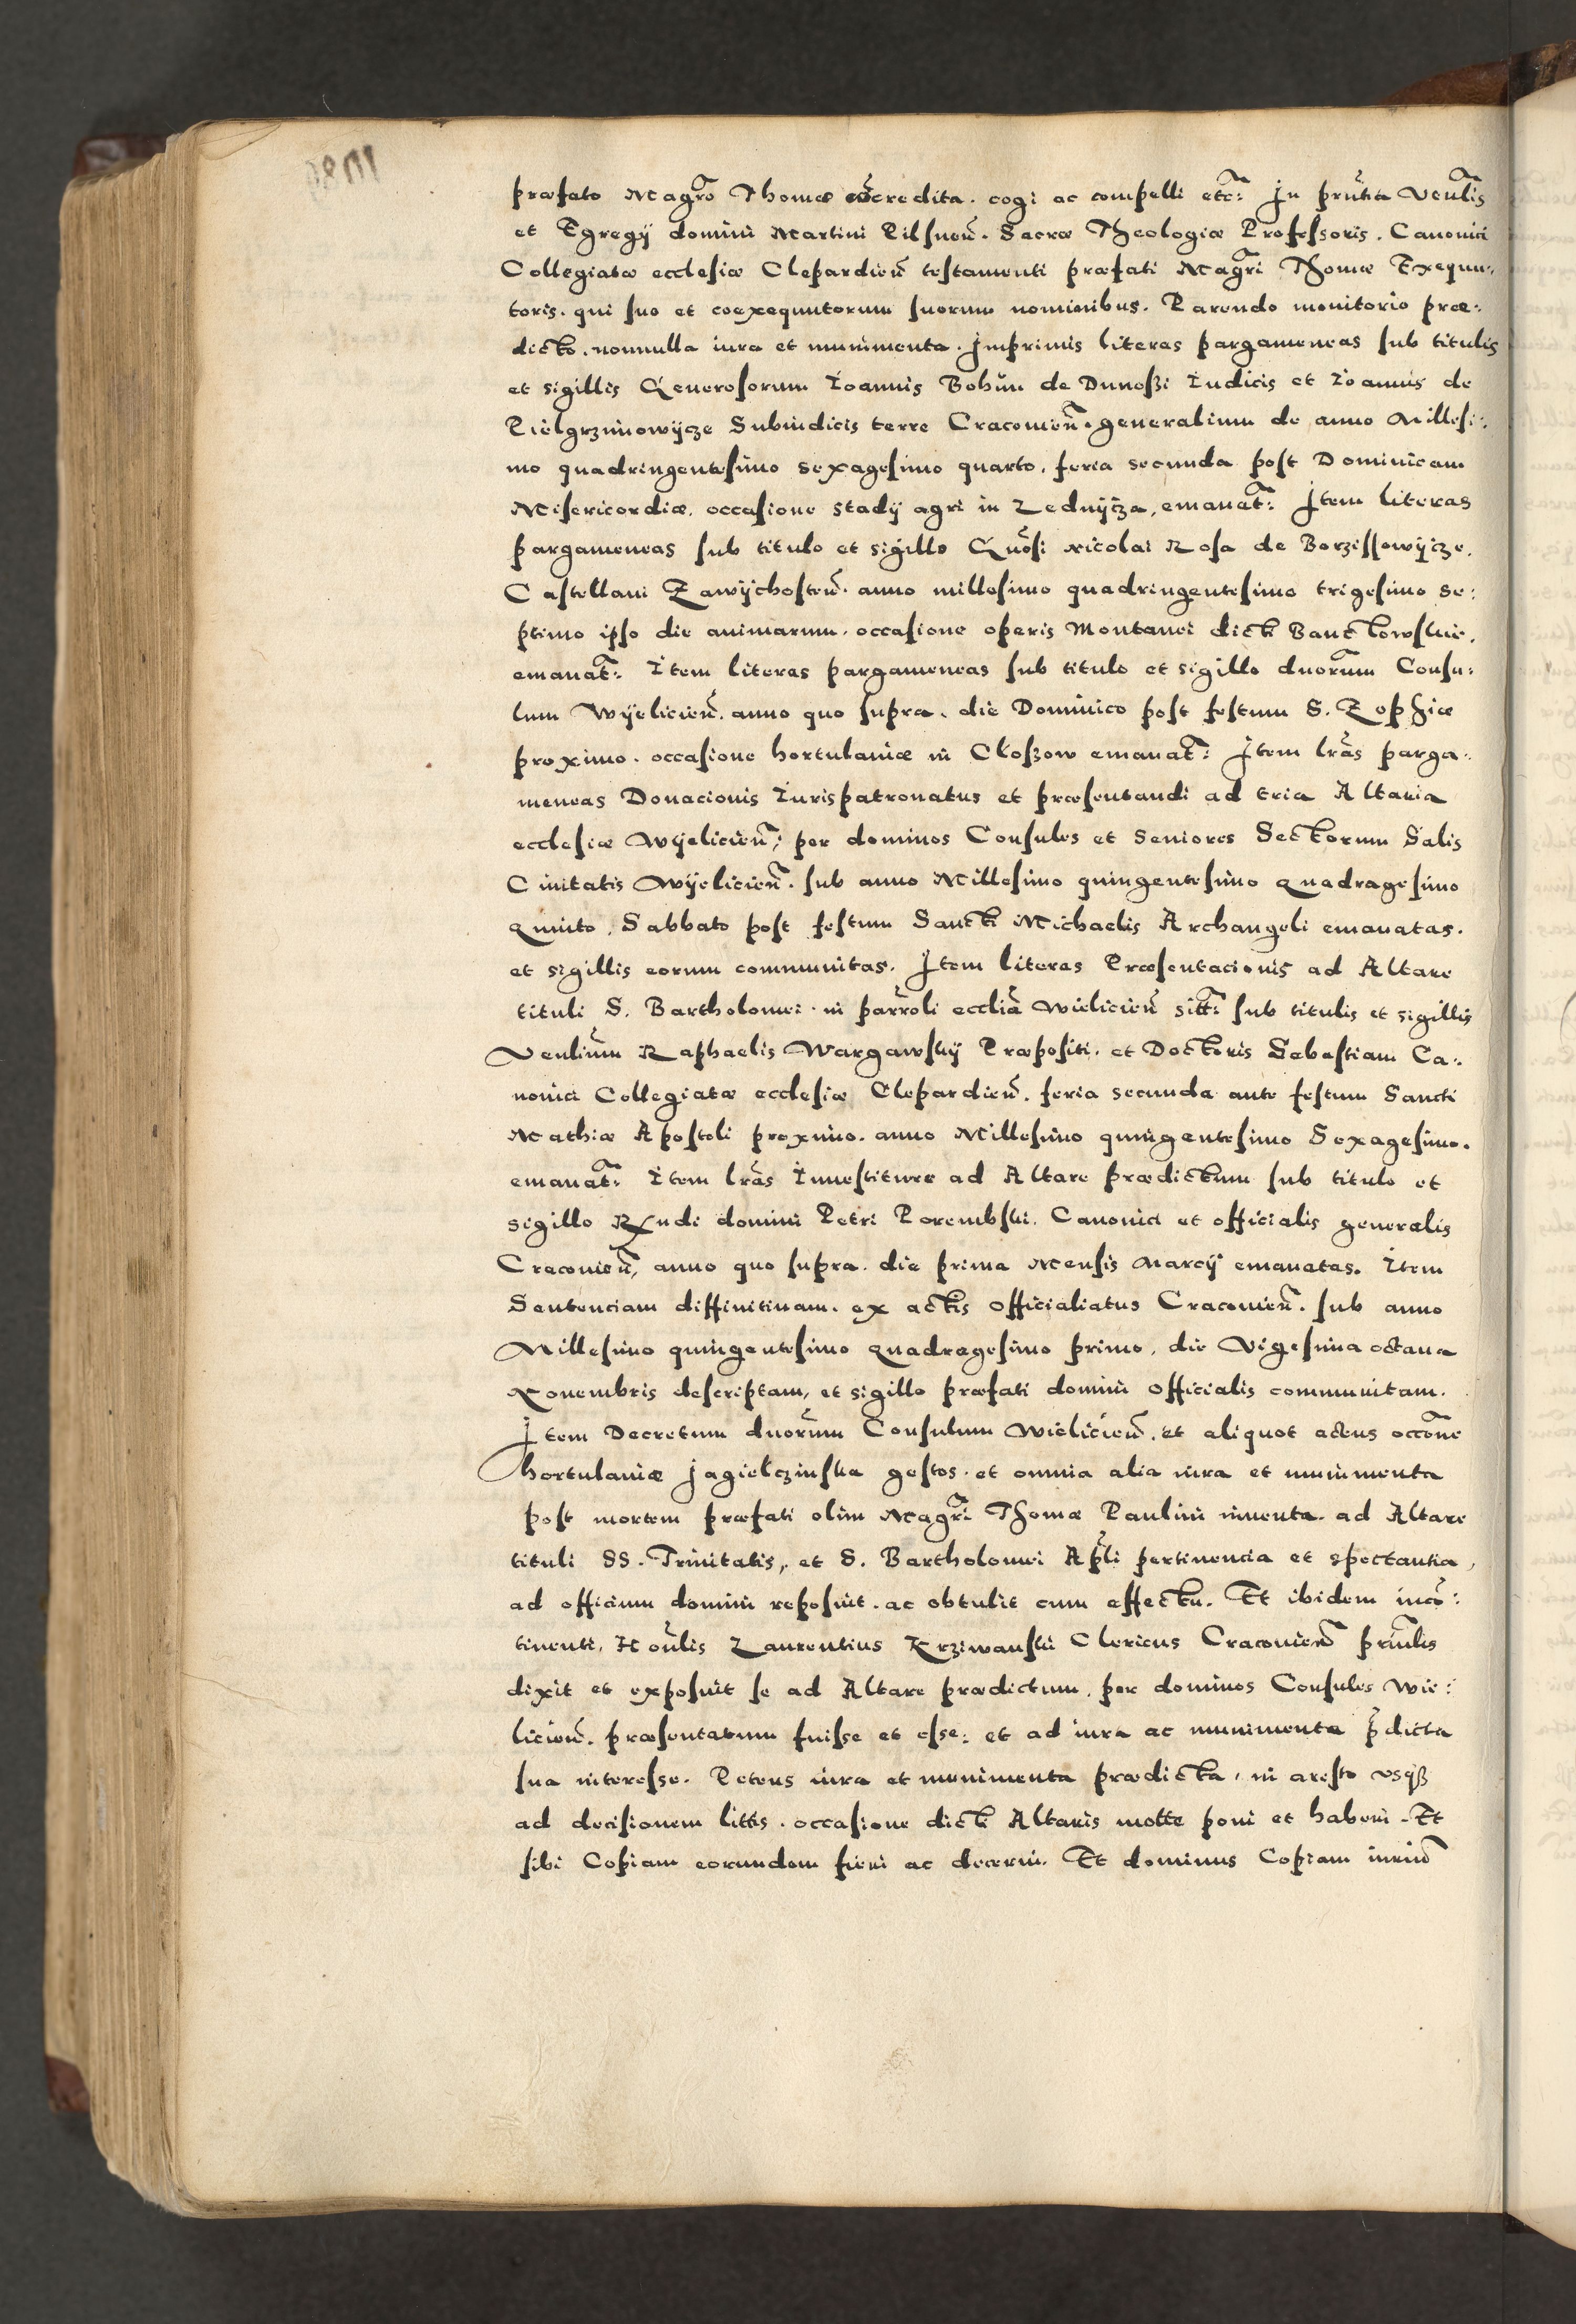 præfato Magrõ Thomæ cõcredita. cogi ac compelli etc̃: In prñtia Venlis̃
et Egregÿ domini Martini Pilsneñ. Sacræ Theologiæ Professoris. Canonici
Collegiatæ ecclesiæ Clepardieñ testamenti præfati Magrĩ Thomæ Exequu:
toris. qui suo et coexequutorum suorum nominibus. Parendo monitorio præ:
dicto. nonnulla iura et munimenta. Imprimis literas pargameneas sub titulis
et sigillis Generosorum Ioannis Bohun de Dunoszi Iudicis et Ioannis de
Pielgrzimowÿcze Subiudicis terre Cracovieñ. generalium de anno Millesi:
mo quadringentesimo sexagesimo quarto. feria secunda post Dominicam
Misericordiæ. occasione stadÿ agri in Lednÿcza, emanat̃: Item literas
pargameneas sub titulo et sigillo Gñosi Nicolai Rosa de Borzissowÿcze.
Castellani Zawÿchosteñ. anno millesimo quadringentesimo trigesimo se:
ptimo ipso die animarum. occasione operis Montanei dicti Banckowskie.
emanat̃: Item literas pargameneas sub titulo et sigillo dnorũm Consu:
lum Wÿelicieñ. anno quo supra. die Dominico post festum S. Zophiæ
proximo. occasione hortulaniæ in Closzow emanat̃: Item lrãs parga:
meneas Donacionis Iurispatronatus et præsentandi ad tria Altaria
ecclesiæ Wÿelicieñ; per dominos Consules et Seniores Sectorum Salis
Ciuitatis Wÿelicieñ. sub anno Millesimo quingentesimo quadragesimo
quinto. Sabbato post festum Sancti Michaelis Archangeli emanatas.
et sigillis eorum communitas. Item literas Præsentacionis ad Altare
tituli S. Bartholomei. in parr̃oli eccliã Wielicieñ sitt̃: sub titulis et sigillis
Venliũm Raphaelis Wargawskÿ Præpositi. et Doctoris Sebastiani Ca:
nonici Collegiatæ ecclesiæ Clepardieñ. feria secunda ante festum Sancti
Mathiæ Apostoli proximo. anno Millesimo quingentesimo Sexagesimo.
emanat̃: Item lrãs Inuestiture ad Altare prædictum sub titulo et
sigillo Rndi domini Petri Porembski. Canonici et officialis generalis
Cracovieñ, anno quo supra. die prima Mensis Marcÿ emanatas. Item
Sentenciam diffinitiuam. ex actis Officialiatus Cracovieñ. sub anno
Millesimo quingentesimo quadragesimo primo, die Vigesima octaua
Nouembris descriptam, et sigillo præfati domini Officialis communitam.
Item Decretum dnorũm Consulum Wielicieñ. et aliquot actus occõne
hortulaniæ Jagielczinska gestos. et omnia alia iura et munimenta
post mortem præfati olim Magrĩ Thomæ Paulini inuenta. ad Altare
tituli SS. Trinitatis, et S. Bartholomei Apl̃i pertinencia et spectantia,
ad officium domini reposuit. ac obtulit cum effectu. Et ibidem incõ:
tinenti, Honl̃is Laurentius Krziwanski Clericus Cracovieñ prñnlis
dixit et exposuit se ad Altare prædictum, per dominos Consules Wie:
licieñ. præsentatum fuisse et esse: et ad iura ac munimenta p̃dicta
sua interesse. Petens iura et munimenta prædicta, in aresto usqȝ
ad decisionem littis. occasione dicti Altaris motte poni et haberi. Et
sibi Copiam eorundem fieri ac decerni. Et dominus Copiam iuriũ